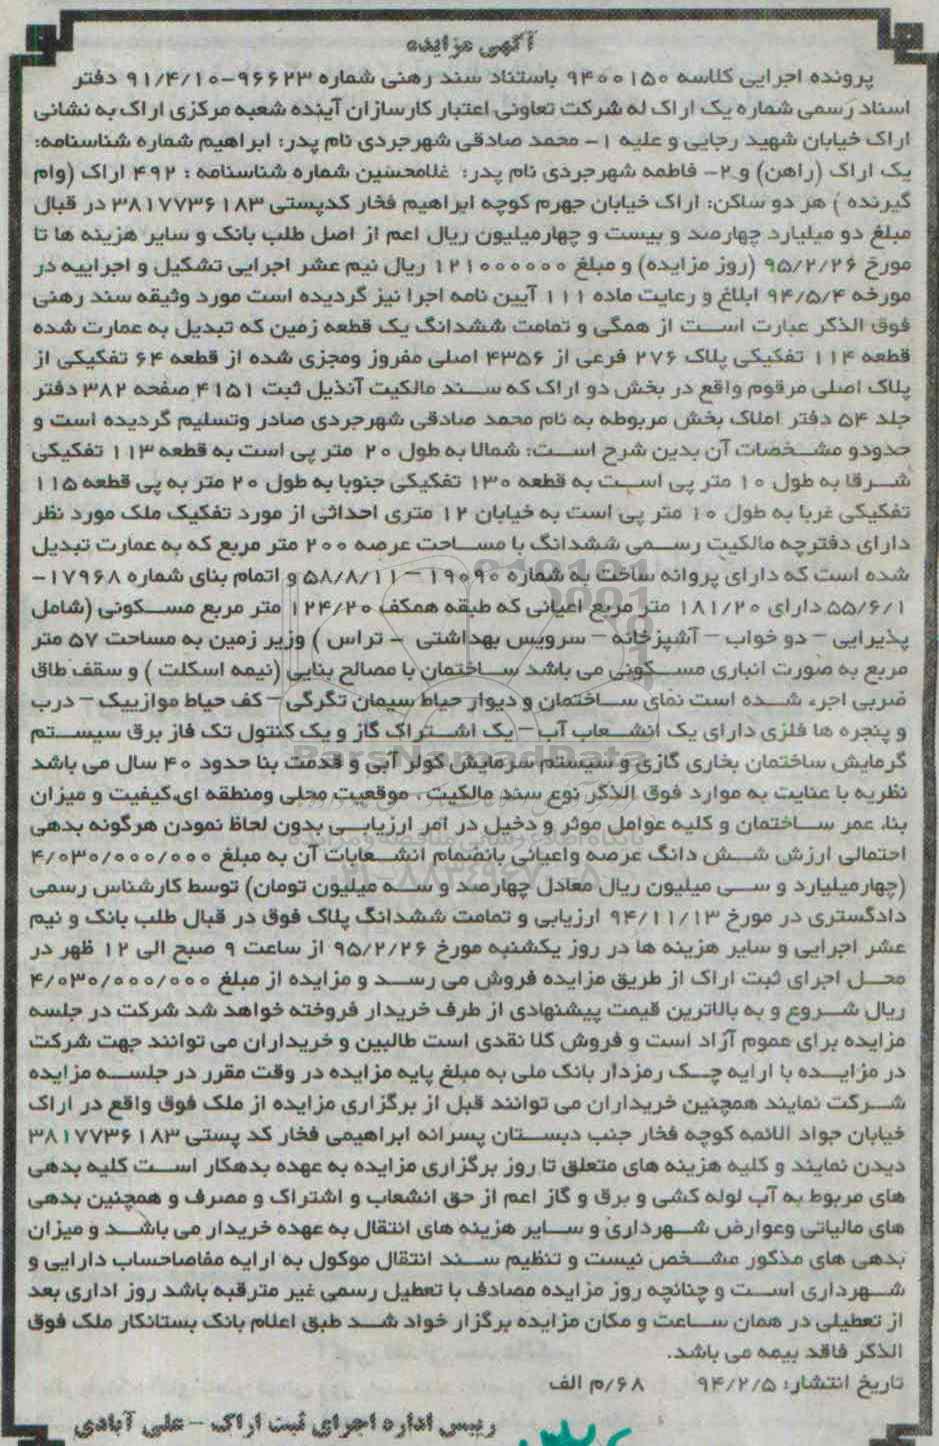 آگهی مزایده
پرونده اجرایی کلاسه ۹۴۰۰۱۵۰ باستناد سند رهنی شماره ۹۶۶۲۳-۹۱/۴/۱۰ دفتر
اسناد رسمی شماره یک اراک له شرکت تعاونی اعتبار کارسازان آینده شعبه مرکزی اراک به نشانی
اراک خیابان شهید رجایی و علیه ۱- محمد صادقی شهرجردی نام پدر: ابراهیم شماره شناسنامه:
یک اراک (راهن) و ۲- فاطمه شهرجردی نام پدر: غلامحسین شماره شناسنامه : ۴۹۲ اراک (وام
گیرنده ) هر دو ساکن: اراک خیابان جهرم کوچه ابراهیم فخار کدپستی ۳۸۱۷۷۳۶۱۸۳ در قبال
مبلغ دو میلیارد چهارصد و بیست و چهارمیلیون ریال اعم از اصل طلب بانک و سایر هزینه ها تا
مورخ ۹۵/۲/۲۶ (روز مزایده) و مبلغ ۱۲۱۰۰۰۰۰۰ ریال نیم عشر اجرایی تشکیل و اجراییه در
مورخه ۹۴/۵/۴ ابلاغ و رعایت ماده ۱۱۱ آیین نامه اجرا نیز گردیده است مورد وثیقه سند رهنی
فوق الذکر عبارت است از همگی و تمامت ششدانگ یک قطعه زمین که تبدیل به عمارت شده
قطعه ۱۱۴ تفکیکی پلاک ۲۷۶ فرعی از ۴۳۵۶ اصلی مفروز ومجزی شده از قطعه ۶۴ تفکیکی از
پلاک اصلی مرقوم واقع در بخش دو اراک که سند مالکیت آنذیل ثبت ۴۱۵۱ صفحه ۳۸۲ دفتر
جلد ۵۴ دفتر املاک بخش مربوطه به نام محمد صادقی شهرجردی صادر وتسلیم گردیده است و
حدودو مشخصات آن بدین شرح است: شمالا به طول ۲۰ متر پی است به قطعه ۱۱۳ تفکیکی
شرقا به طول ۱۰ متر پی است به قطعه ۱۳۰ تفکیکی جنوبا به طول ۲۰ متر به پی قطعه ۱۱۵
تفکیکی غربا به طول ۱۰ متر پی است به خیابان ۱۲ متری احداثی از مورد تفکیک ملک مورد نظر
دارای دفترچه مالکیت رسمی ششدانگ با مساحت عرصه ۲۰۰ متر مربع که به عمارت تبدیل
شده است که دارای پروانه ساخت به شماره ۱۹۰۹۰ – ۵۸/۸/۱۱ و اتمام بنای شماره ۱۷۹۶۸-
۵۵/۶/۱ دارای ۱۸۱/۲۰ متر مربع اعیانی که طبقه همکف ۱۲۴/۲۰ متر مربع مسکونی (شامل
پذیرایی – دو خواب – آشپزخانه – سرویس بهداشتی – تراس ) وزیر زمین به مساحت ۵۷ متر
مربع به صورت انباری مسکونی می باشد ساختمان با مصالح بنایی (نیمه اسکلت ) و سقف طاق
ضربی اجرء شده است نمای ساختمان و دیوار حیاط سیمان تگرگی – کف حیاط موازییک – درب
و پنجره ها فلزی دارای یک انشعاب آب – یک اشتراک گاز و یک کنتول تک فاز برق سیستم
گرمایش ساختمان بخاری گازی و سیستم سرمایش کولر آبی و قدمت بنا حدود ۴۰ سال می باشد
نظریه با عنایت به موارد فوق الذکر نوع سند مالکیت ، موقعیت محلی ومنطقه ای،کیفیت و میزان
بنا، عمر ساختمان و کلیه عوامل موثر و دخیل در امر ارزیابی بدون لحاظ نمودن هرگونه بدهی
احتمالی ارزش شش دانگ عرصه واعیانی بانضمام انشعابات آن به مبلغ ۴/۰۳۰/۰۰۰/۰۰۰
(چهارمیلیارد و سی میلیون ریال معادل چهارصد و سه میلیون تومان) توسط کارشناس رسمی
دادگستری در مورخ ۹۴/۱۱/۱۳ ارزیابی و تمامت ششدانگ پلاک فوق در قبال طلب بانک و نیم
عشر اجرایی و سایر هزینه ها در روز یکشنبه مورخ ۹۵/۲/۲۶ از ساعت ۹ صبح الی ۱۲ ظهر در
محل اجرای ثبت اراک از طریق مزایده فروش می رسد و مزایده از مبلغ ۴/۰۳۰/۰۰۰/۰۰۰
ریال شروع و به بالاترین قیمت پیشنهادی از طرف خریدار فروخته خواهد شد شرکت در جلسه
مزایده برای عموم آزاد است و فروش کلا نقدی است طالبین و خریداران می توانند جهت شرکت
در مزایده با ارایه چک رمزدار بانک ملی به مبلغ پایه مزایده در وقت مقرر در جلسه مزایده
شرکت نمایند همچنین خریداران می توانند قبل از برگزاری مزایده از ملک فوق واقع در اراک
خیابان جواد الائمه کوچه فخار جنب دبستان پسرانه ابراهیمی فخار کد پستی ۳۸۱۷۷۳۶۱۸۳
دیدن نمایند و کلیه هزینه های متعلق تا روز برگزاری مزایده به عهده بدهکار است کلیه بدهی
های مربوط به آب لوله کشی و برق و گاز اعم از حق انشعاب و اشتراک و مصرف و همچنین بدهی
های مالیاتی وعوارض شهرداری و سایر هزینه های انتقال به عهده خریدار می باشد و میزان
بدهی های مذکور مشخص نیست و تنظیم سند انتقال موکول به ارایه مفاصاحساب دارایی و
شهرداری است و چنانچه روز مزایده مصادف با تعطیل رسمی غیر مترقبه باشد روز اداری بعد
از تعطیلی در همان ساعت و مکان مزایده برگزار خواد شد طبق اعلام بانک بستانکار ملک فوق
الذکر فاقد بیمه می باشد.
تاریخ انتشار: ۹۴/۲/۵ ۶۸/م الف
رییس اداره اجرای ثبت اراک – علی آبادی
ParsNamadData